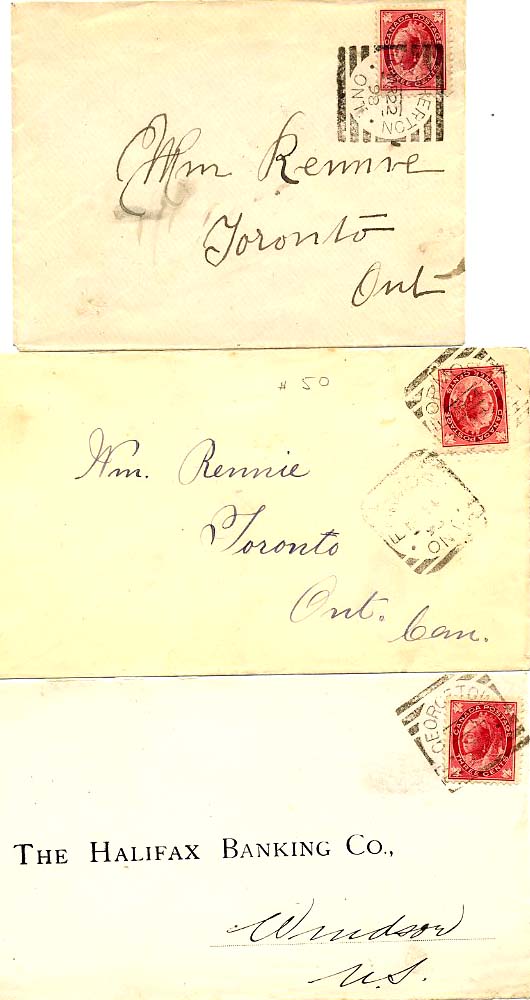 CANADA POSTAGE
THREE CENTS
MR 22
98
ONT
Wm Rennie
Toronto
Ont
# 50
CANADA POSTAGE
THREE CENTS
ONT
Wm. Rennie
Toronto
Ont.
Can.
GEORGETOW
CANADA POSTAGE
THREE CENTS
THE HALIFAX BANKING CO.,
Windsor
N.S.